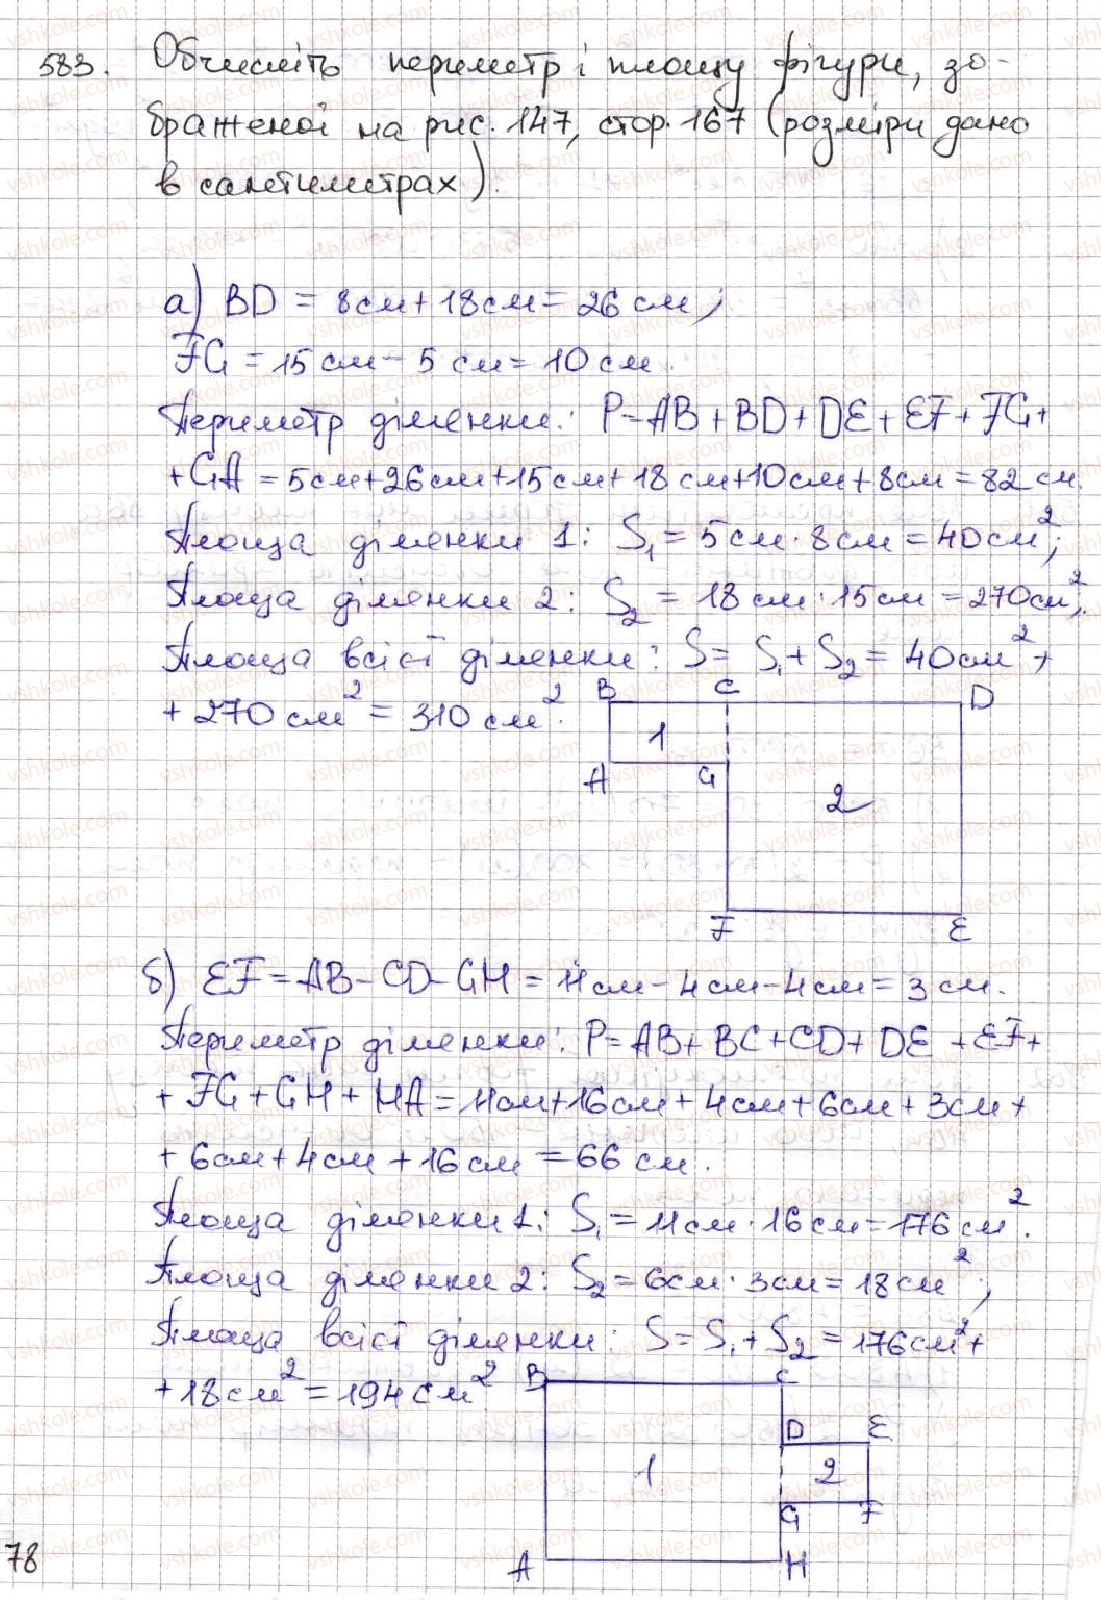 583. Обчисліть периметр і площу фігури, зо-
браженої на рис. 147, стор. 167 (розміри дано
в сантиметрах).
а) BD = 8см + 18см = 26 см;
FG = 15 см - 5 см = 10 см.
Периметр ділянки: P = AB + BD + DE + EF + FG +
+ GA = 5см + 26см + 15см + 18 см + 10см + 8см = 82 см.
Площа ділянки 1: S₁ = 5 см · 8 см = 40 см²;
Площа ділянки 2: S₂ = 18 см · 15 см = 270см²;
Площа всієї ділянки: S = S₁ + S₂ = 40см² +
+ 270 см² = 310 см².
B C D
1
A G
2
F E
б) EF = AB - CD - GH = 11см - 4см - 4см = 3 см.
Периметр ділянки: P = AB + BC + CD + DE + EF +
+ FG + GH + HA = 11см + 16см + 4см + 6см + 3см +
+ 6см + 4см + 16 см = 66 см.
Площа ділянки 1: S₁ = 11см · 16 см = 176 см².
Площа ділянки 2: S₂ = 6см · 3см = 18 см²;
Площа всієї ділянки: S = S₁ + S₂ = 176см² +
+ 18 см² = 194 см²
B C
D E
1 2
G F
A H
78
vshkole.com